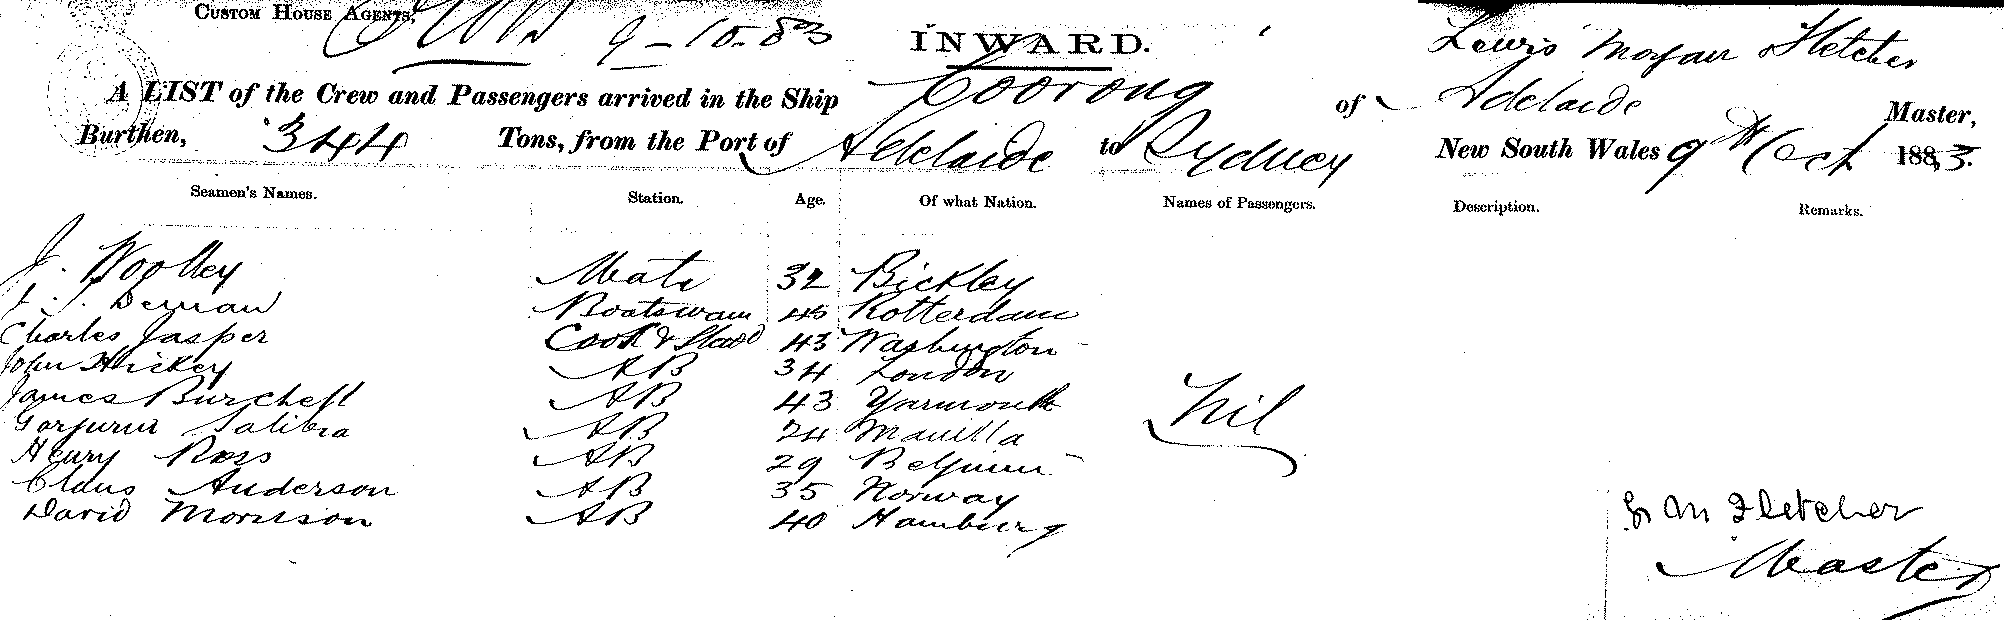 CUSTOM HOUSE AGENTS, 9-10-83
INWARD.
Lewis Morgan Fletcher
A LIST of the Crew and Passengers arrived in the Ship Coorong of Adelaide Master,
Burthen, 344 Tons, from the Port of Adelaide to Sydney New South Wales 9th Oct 1883.
Seamen's Names. Station. Age. Of what Nation. Names of Passengers. Description. Remarks.
J. Woolley Mate 32 Bickley
Boatswain 45 Rotterdam
Charles Jasper Cook & Stwd 43 Washington
John Hickey AB 34 London
James Burchell AB 43 Yarmouth
Salibia AB 24 Manilla
Nil
Henry Ross AB 29 Belgium
Claus Anderson AB 35 Norway
David Morrison AB 40 Hamburg
L M Fletcher
Master